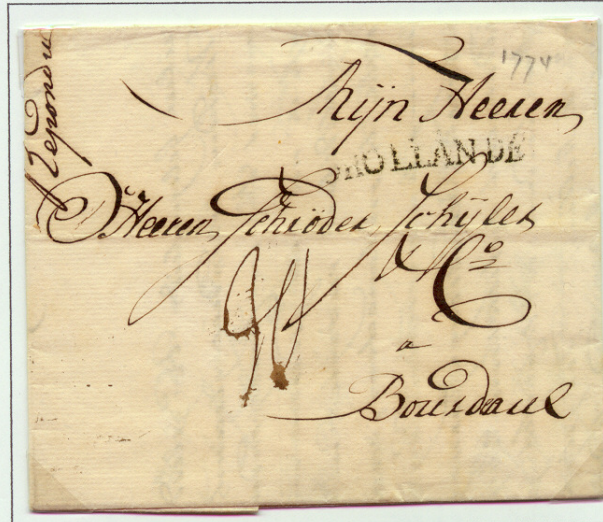 Repondu
1774
Mijn Heeren
D'HOLLANDE
D Heeren Schröder, Schÿler
& Co
a
Bourdaux